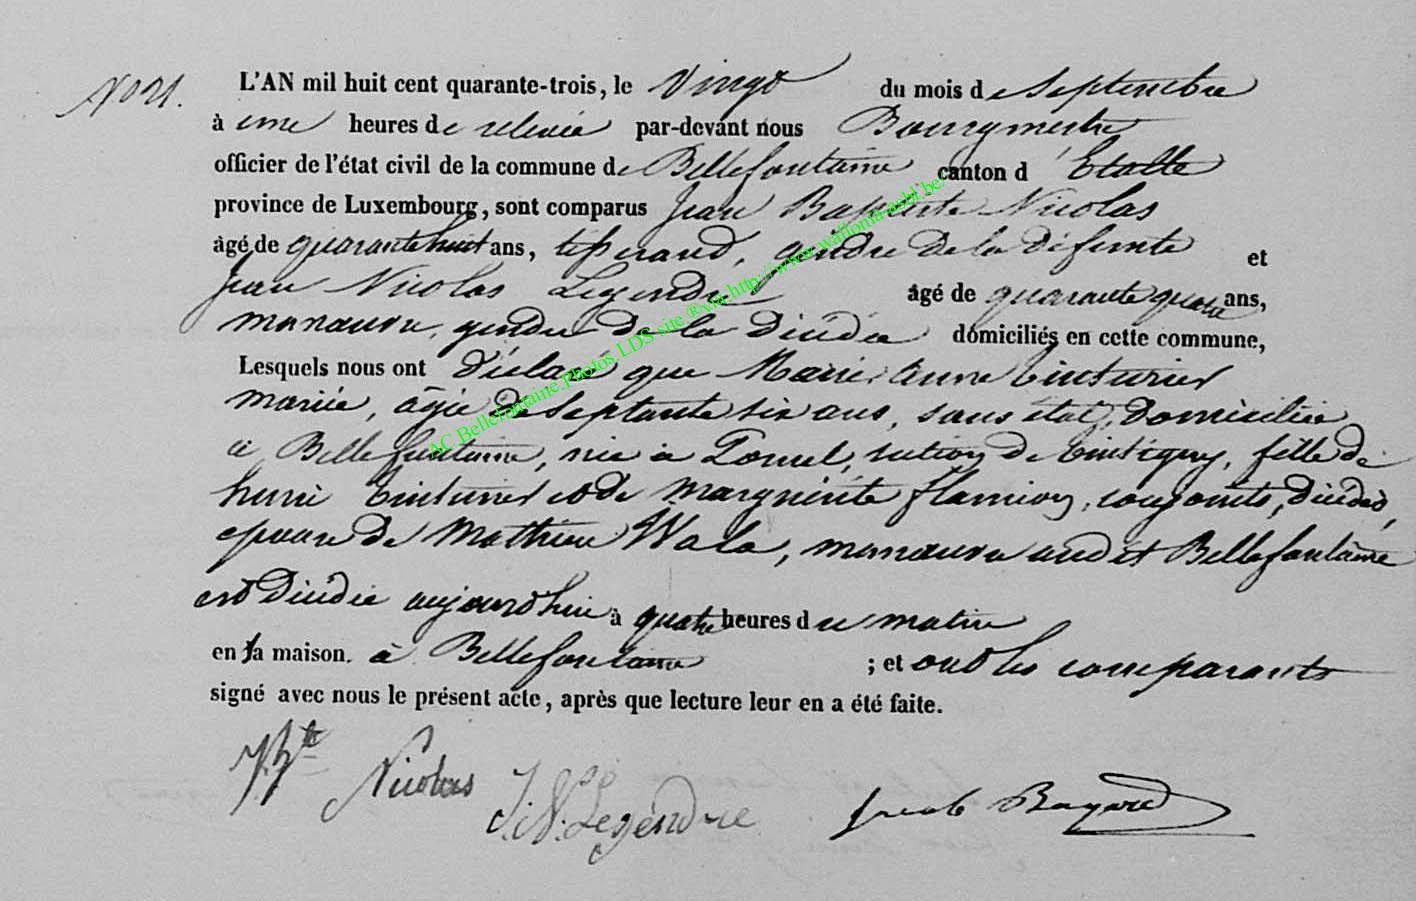 No 21.
L'AN mil huit cent quarante-trois, le Vingt du mois de Septembre
à une heures de relevée par-devant nous Bourgmestre
officier de l'état civil de la commune de Bellefontaine canton d'Etalle
province de Luxembourg, sont comparus Jean Baptiste Nicolas
âgé de quarante huit ans, tisserand, gendre de la défunte et
Jean Nicolas Legendre âgé de quarante quatre ans,
manœuvre, gendre de la décédée domiciliés en cette commune,
Lesquels nous ont déclaré que Marie Anne Tinturier
mariée, âgée de septante six ans, sans état, domiciliée
à Bellefontaine, née à section de Tintigny, fille de
henri Tinturier et de Marguerite flamion, conjoints, décédés,
epouse de Mathieu Wala, manœuvre audit Bellefontaine
est décédée aujourd'hui à quatre heures du matin
en sa maison. à Bellefontaine ; et ont les comparants
signé avec nous le présent acte, après que lecture leur en a été faite.
J. Bte Nicolas J. N. Legendre Jacob Bayard
AC Bellefontaine.Photos LDS site ®via http://www.wallonia-asbl.be/